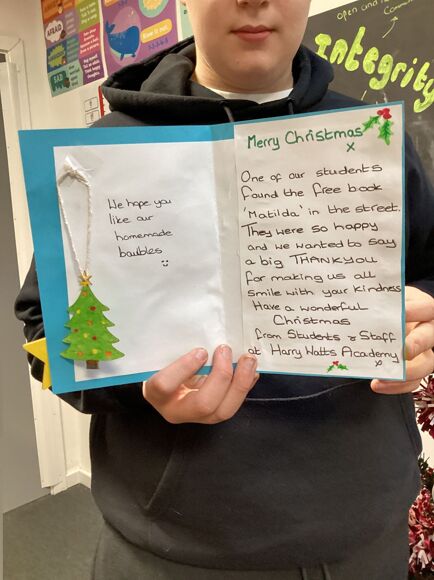 AFRAID
SAD
Open and
Integrity
We hope you
like our
homemade
baubles
:)
Merry Christmas
x
One of our students
found the free book
'Matilda' in the street.
They were so happy
and we wanted to say
a big THANKYOU
for making us all
smile with your kindness
Have a wonderful
Christmas
from Students & Staff
at Harry Watts Academy
x